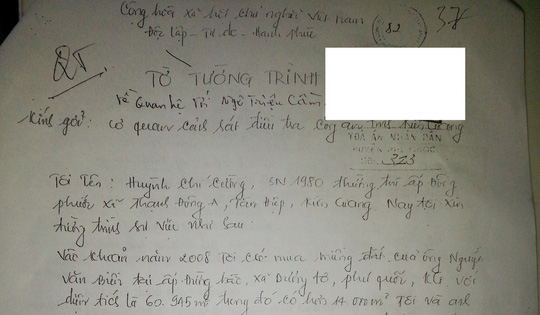 Cộng hòa xã hội chủ nghĩa Việt nam
82
37
Độc lập - Tự do - Hạnh phúc
TỜ TƯỜNG TRÌNH
Về Quan hệ với Ngô Triệu Cầm
Kính gởi: Cơ quan cảnh sát điều tra công an tỉnh Kiên Giang
TÒA ÁN NHÂN DÂN
SỐ: 323
Tôi Tên: Huỳnh Chí Cường, SN 1980 thường trú ấp Đông
phước xã Thạnh Đông A, Tân Hiệp, Kiên Giang Nay tôi xin
tường trình sự việc như sau:
Vào khoản năm 2008 Tôi có mua miếng đất của ông Nguyễn
Văn Điền tại ấp Đường bào, xã Dương tơ, phú quốc, KG với
diện tích là 60.945m² trong đó có hơn 14.000m² Tôi và anh